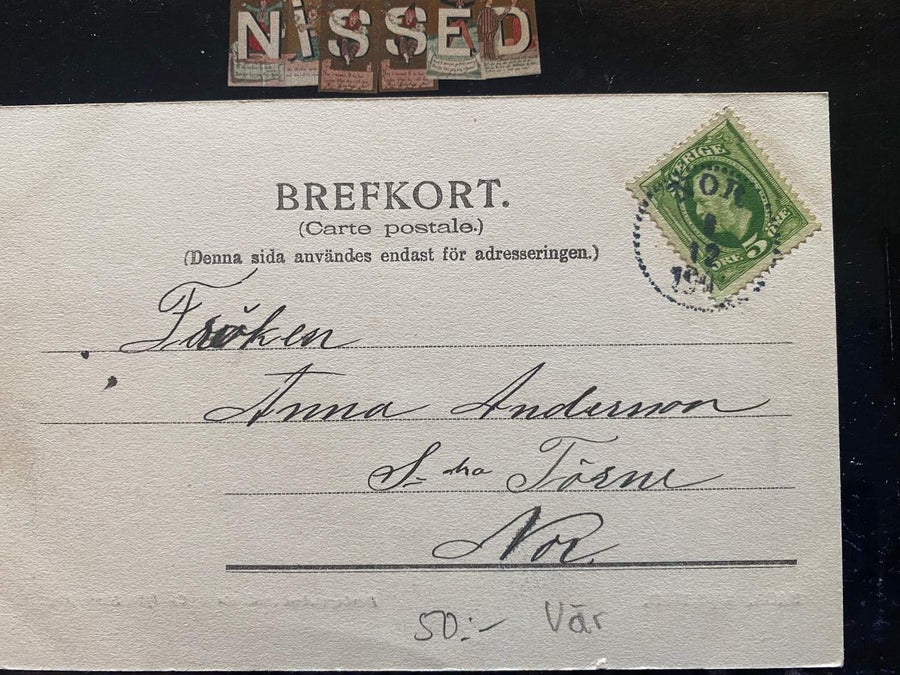 NISSED
BREFKORT.
(Carte postale.)
(Denna sida användes endast för adresseringen.)
SVERIGE
5 ÖRE
NOR
1
12
190
Fröken
Anna Anderson
S-dra Törne
Nor.
50:- Vår